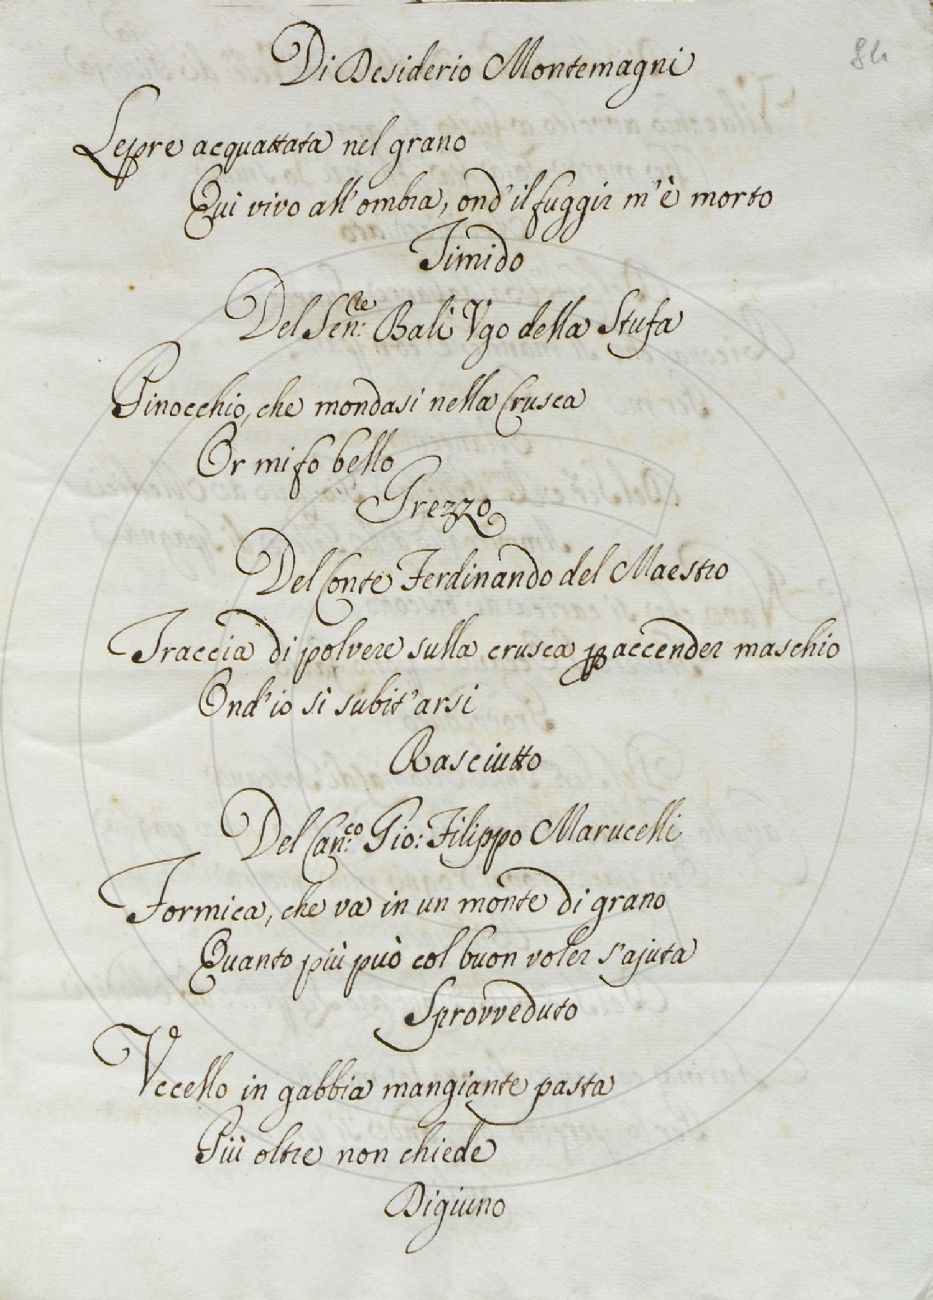 84
Di Desiderio Montemagni
Lepre acquattata nel grano
Qui vivo all'ombra, ond'il fuggir m'è morto
Timido
Del Sen:re Balì Vgo della Stufa
Pinocchio, che mondasi nella Crusca
Or mi fo bello
Grezzo
Del Conte Ferdinando del Maestro
Traccia di polvere sulla crusca p accender maschio
Ond'io sì subit'arsi
Rasciutto
Del Can:co Gio: Filippo Marucelli
Formica, che va in un monte di grano
Quanto più può col buon voler s'ajuta
Sprovveduto
Vccello in gabbia mangiante pasta
Più oltre non chiede
Digiuno